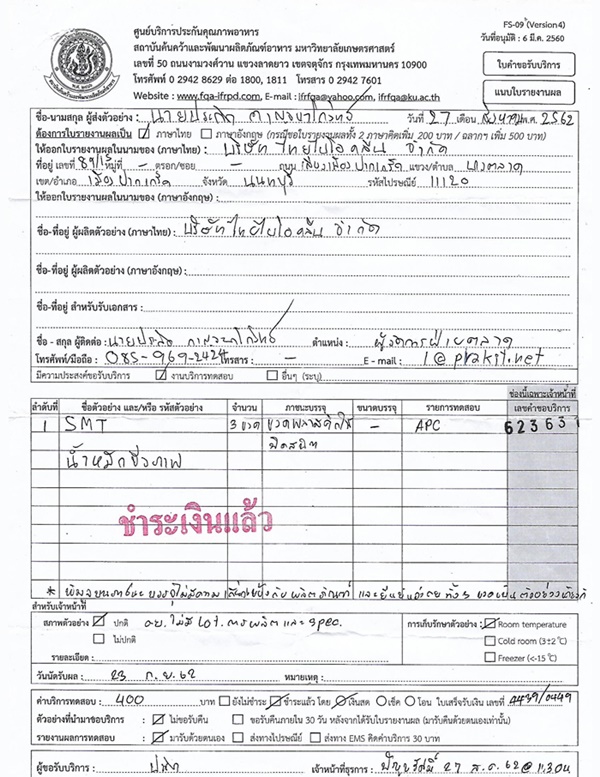 FS-09 (Version4)
วันที่อนุมัติ : 6 มี.ค. 2560
ศูนย์บริการประกันคุณภาพอาหาร
สถาบันค้นคว้าและพัฒนาผลิตภัณฑ์อาหาร มหาวิทยาลัยเกษตรศาสตร์
เลขที่ 50 ถนนงามวงศ์วาน แขวงลาดยาว เขตจตุจักร กรุงเทพมหานคร 10900
โทรศัพท์ 0 2942 8629 ต่อ 1800, 1811 โทรสาร 0 2942 7601
Website : www.fqa-ifrpd.com, E-mail : ifrfqa@yahoo.com, ifrfqa@ku.ac.th
ใบคำขอรับบริการ
แบบใบรายงานผล
ชื่อ-นามสกุล ผู้ส่งตัวอย่าง : นายประกิต วันที่ 27 เดือน สิงหาคม พ.ศ. 2562
ต้องการใบรายงานผลเป็น ภาษาไทย ภาษาอังกฤษ (กรณีขอใบรายงานผลทั้ง 2 ภาษาคิดเพิ่ม 200 บาท / ฉลากฯ เพิ่ม 500 บาท)
ให้ออกใบรายงานผลในนามของ (ภาษาไทย) : บริษัท ไทยไบโอคลีน จำกัด
ที่อยู่ เลขที่ หมู่ที่ - ตรอก/ซอย - ถนน เลี่ยงเมืองปากเกร็ด แขวง/ตำบล บางตลาด
เขต/อำเภอ เมืองปากเกร็ด จังหวัด นนทบุรี รหัสไปรษณีย์ 11120
ให้ออกใบรายงานผลในนามของ (ภาษาอังกฤษ) :
ชื่อ-ที่อยู่ ผู้ผลิตตัวอย่าง (ภาษาไทย) : บริษัท ไทยไบโอคลีน จำกัด
ชื่อ-ที่อยู่ ผู้ผลิตตัวอย่าง (ภาษาอังกฤษ) :
ชื่อ-ที่อยู่ สำหรับรับเอกสาร :
ชื่อ - สกุล ผู้ติดต่อ : นายประกิต ตำแหน่ง : ผู้จัดการฝ่ายตลาด
โทรศัพท์/มือถือ : 085-969-2424 โทรสาร : - E - mail : 1@prakit.net
มีความประสงค์ขอรับบริการ งานบริการทดสอบ อื่นๆ (ระบุ)
ช่องนี้เฉพาะเจ้าหน้าที่
ลำดับที่ ชื่อตัวอย่าง และ/หรือ รหัสตัวอย่าง จำนวน ภาชนะบรรจุ ขนาดบรรจุ รายการทดสอบ เลขคำขอบริการ
1 SMT 3 ขวด ขวดพลาสติกใช - APC 62363
ปิดสนิท
น้ำหมักชีวภาพ
ชำระเงินแล้ว
สำหรับเจ้าหน้าที่
สภาพตัวอย่าง ปกติ ตย. ไม่มี Lot. การผลิต และ spec. การเก็บรักษาตัวอย่าง : Room temperature
ไม่ปกติ Cold room (3±2 °C)
รายละเอียด : Freezer (<-15 °C)
วันนัดรับผล : 23 ก.ย. 62 หมายเหตุ :
ค่าบริการทดสอบ : 400 บาท ยังไม่ชำระ ชำระแล้ว โดย เงินสด เช็ค โอน ใบเสร็จรับเงิน เลขที่ A439/0449
ตัวอย่างที่นำมาขอบริการ : ไม่ขอรับคืน ขอรับคืนภายใน 30 วัน หลังจากได้รับใบรายงานผล (มารับคืนด้วยตนเองเท่านั้น)
รายงานผลการทดสอบ : มารับด้วยตนเอง ส่งทางไปรษณีย์ ส่งทาง EMS คิดค่าบริการ 30 บาท
ผู้ขอรับบริการ : เจ้าหน้าที่ธุรการ : 27 ส.ค. 62 @ 11.30น